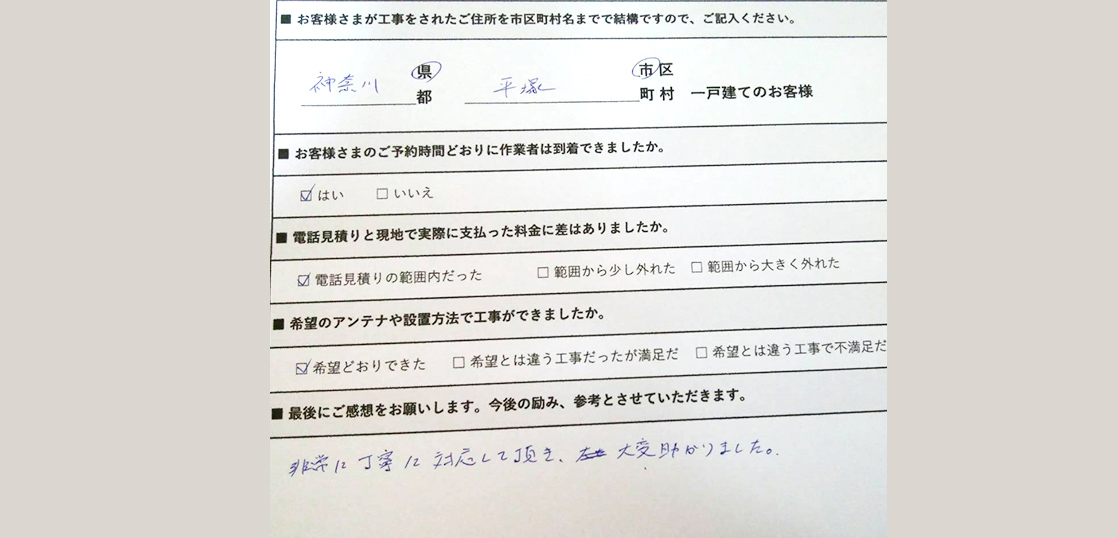 ■ お客様さまが工事をされたご住所を市区町村名までで結構ですので、ご記入ください。
神奈川 県 平塚 市 区
都 町 村 一戸建てのお客様
■ お客様さまのご予約時間どおりに作業者は到着できましたか。
☑ はい ☐ いいえ
■ 電話見積りと現地で実際に支払った料金に差はありましたか。
☑ 電話見積りの範囲内だった ☐ 範囲から少し外れた ☐ 範囲から大きく外れた
■ 希望のアンテナや設置方法で工事ができましたか。
☑ 希望どおりできた ☐ 希望とは違う工事だったが満足だ ☐ 希望とは違う工事で不満足だ
■ 最後にご感想をお願いします。今後の励み、参考とさせていただきます。
非常に丁寧に対応して頂き、大変助かりました。